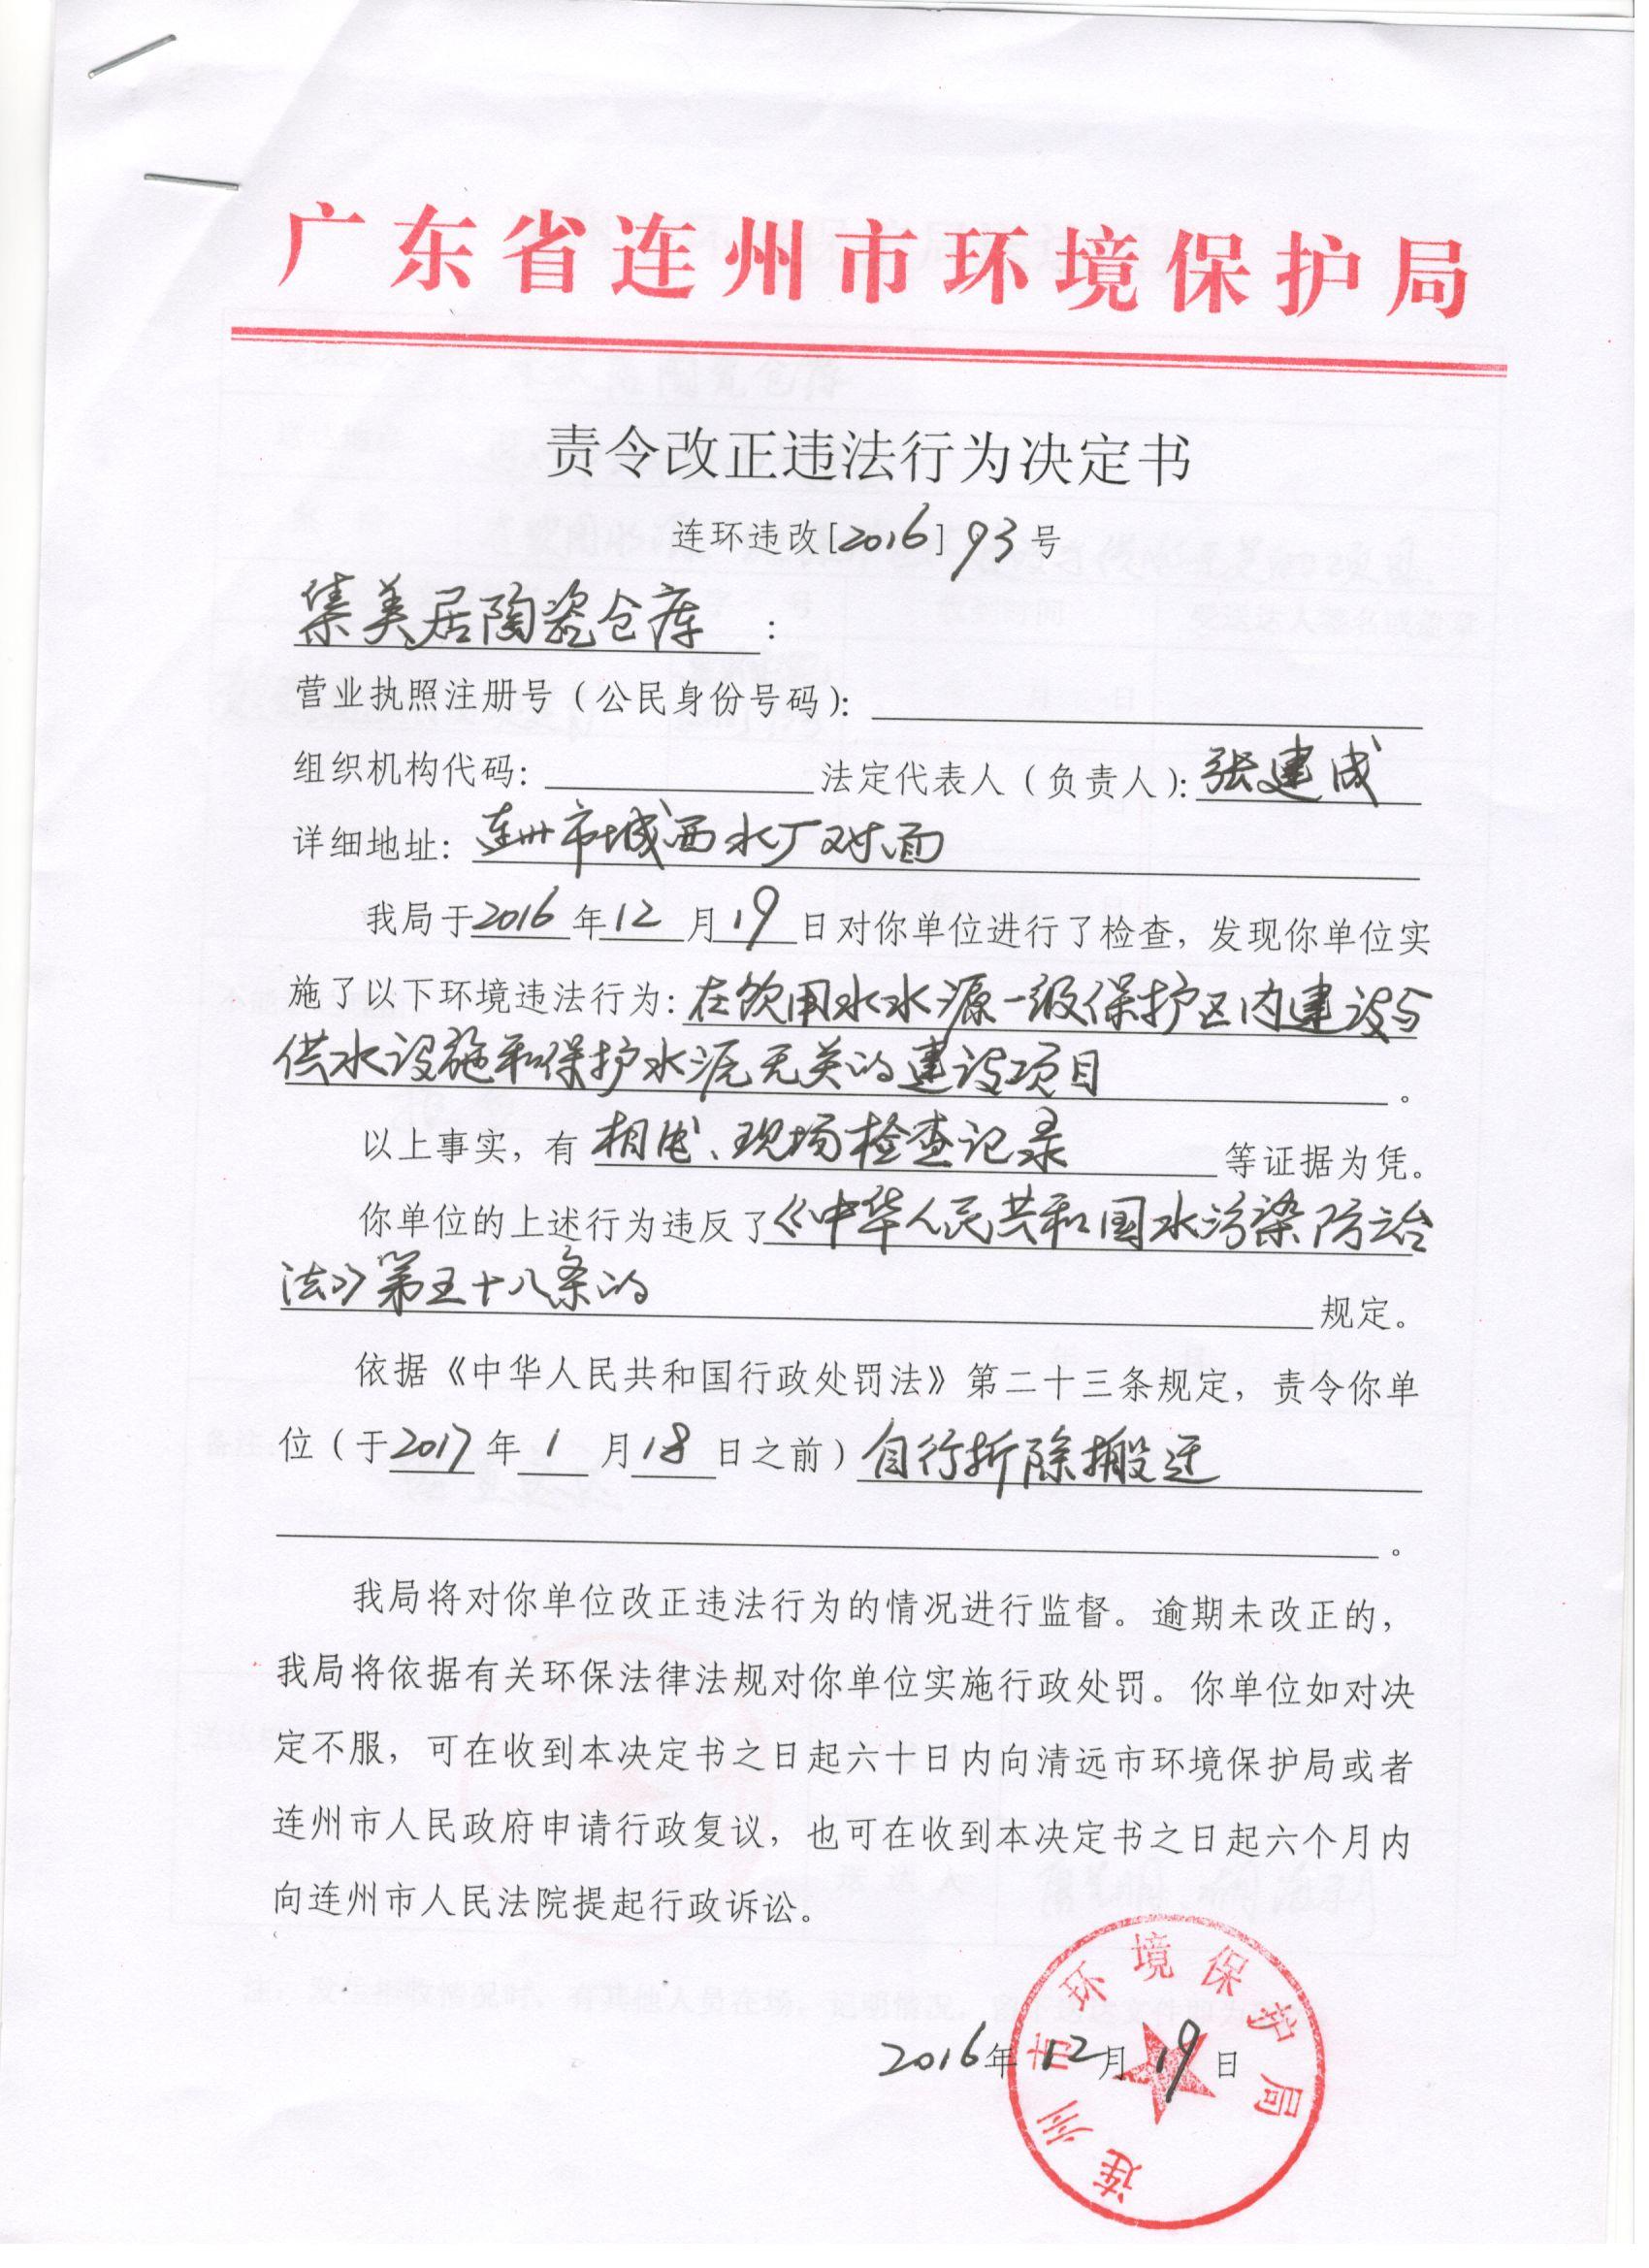 广东省连州市环境保护局
责令改正违法行为决定书
连环违改[2016]93号
集美居陶瓷仓库：
营业执照注册号（公民身份号码）：
组织机构代码：法定代表人（负责人）：张建成
详细地址：连州市城西水厂对面
我局于2016年12月19日对你单位进行了检查，发现你单位实
施了以下环境违法行为：在饮用水水源一级保护区内建设与
供水设施和保护水源无关的建设项目。
以上事实，有相片、现场检查记录等证据为凭。
你单位的上述行为违反了《中华人民共和国水污染防治
法》第五十八条的规定。
依据《中华人民共和国行政处罚法》第二十三条规定，责令你单
位（于2017年1月18日之前）自行拆除搬迁
。
我局将对你单位改正违法行为的情况进行监督。逾期未改正的，
我局将依据有关环保法律法规对你单位实施行政处罚。你单位如对决
定不服，可在收到本决定书之日起六十日内向清远市环境保护局或者
连州市人民政府申请行政复议，也可在收到本决定书之日起六个月内
向连州市人民法院提起行政诉讼。
2016年12月19日
连州市环境保护局